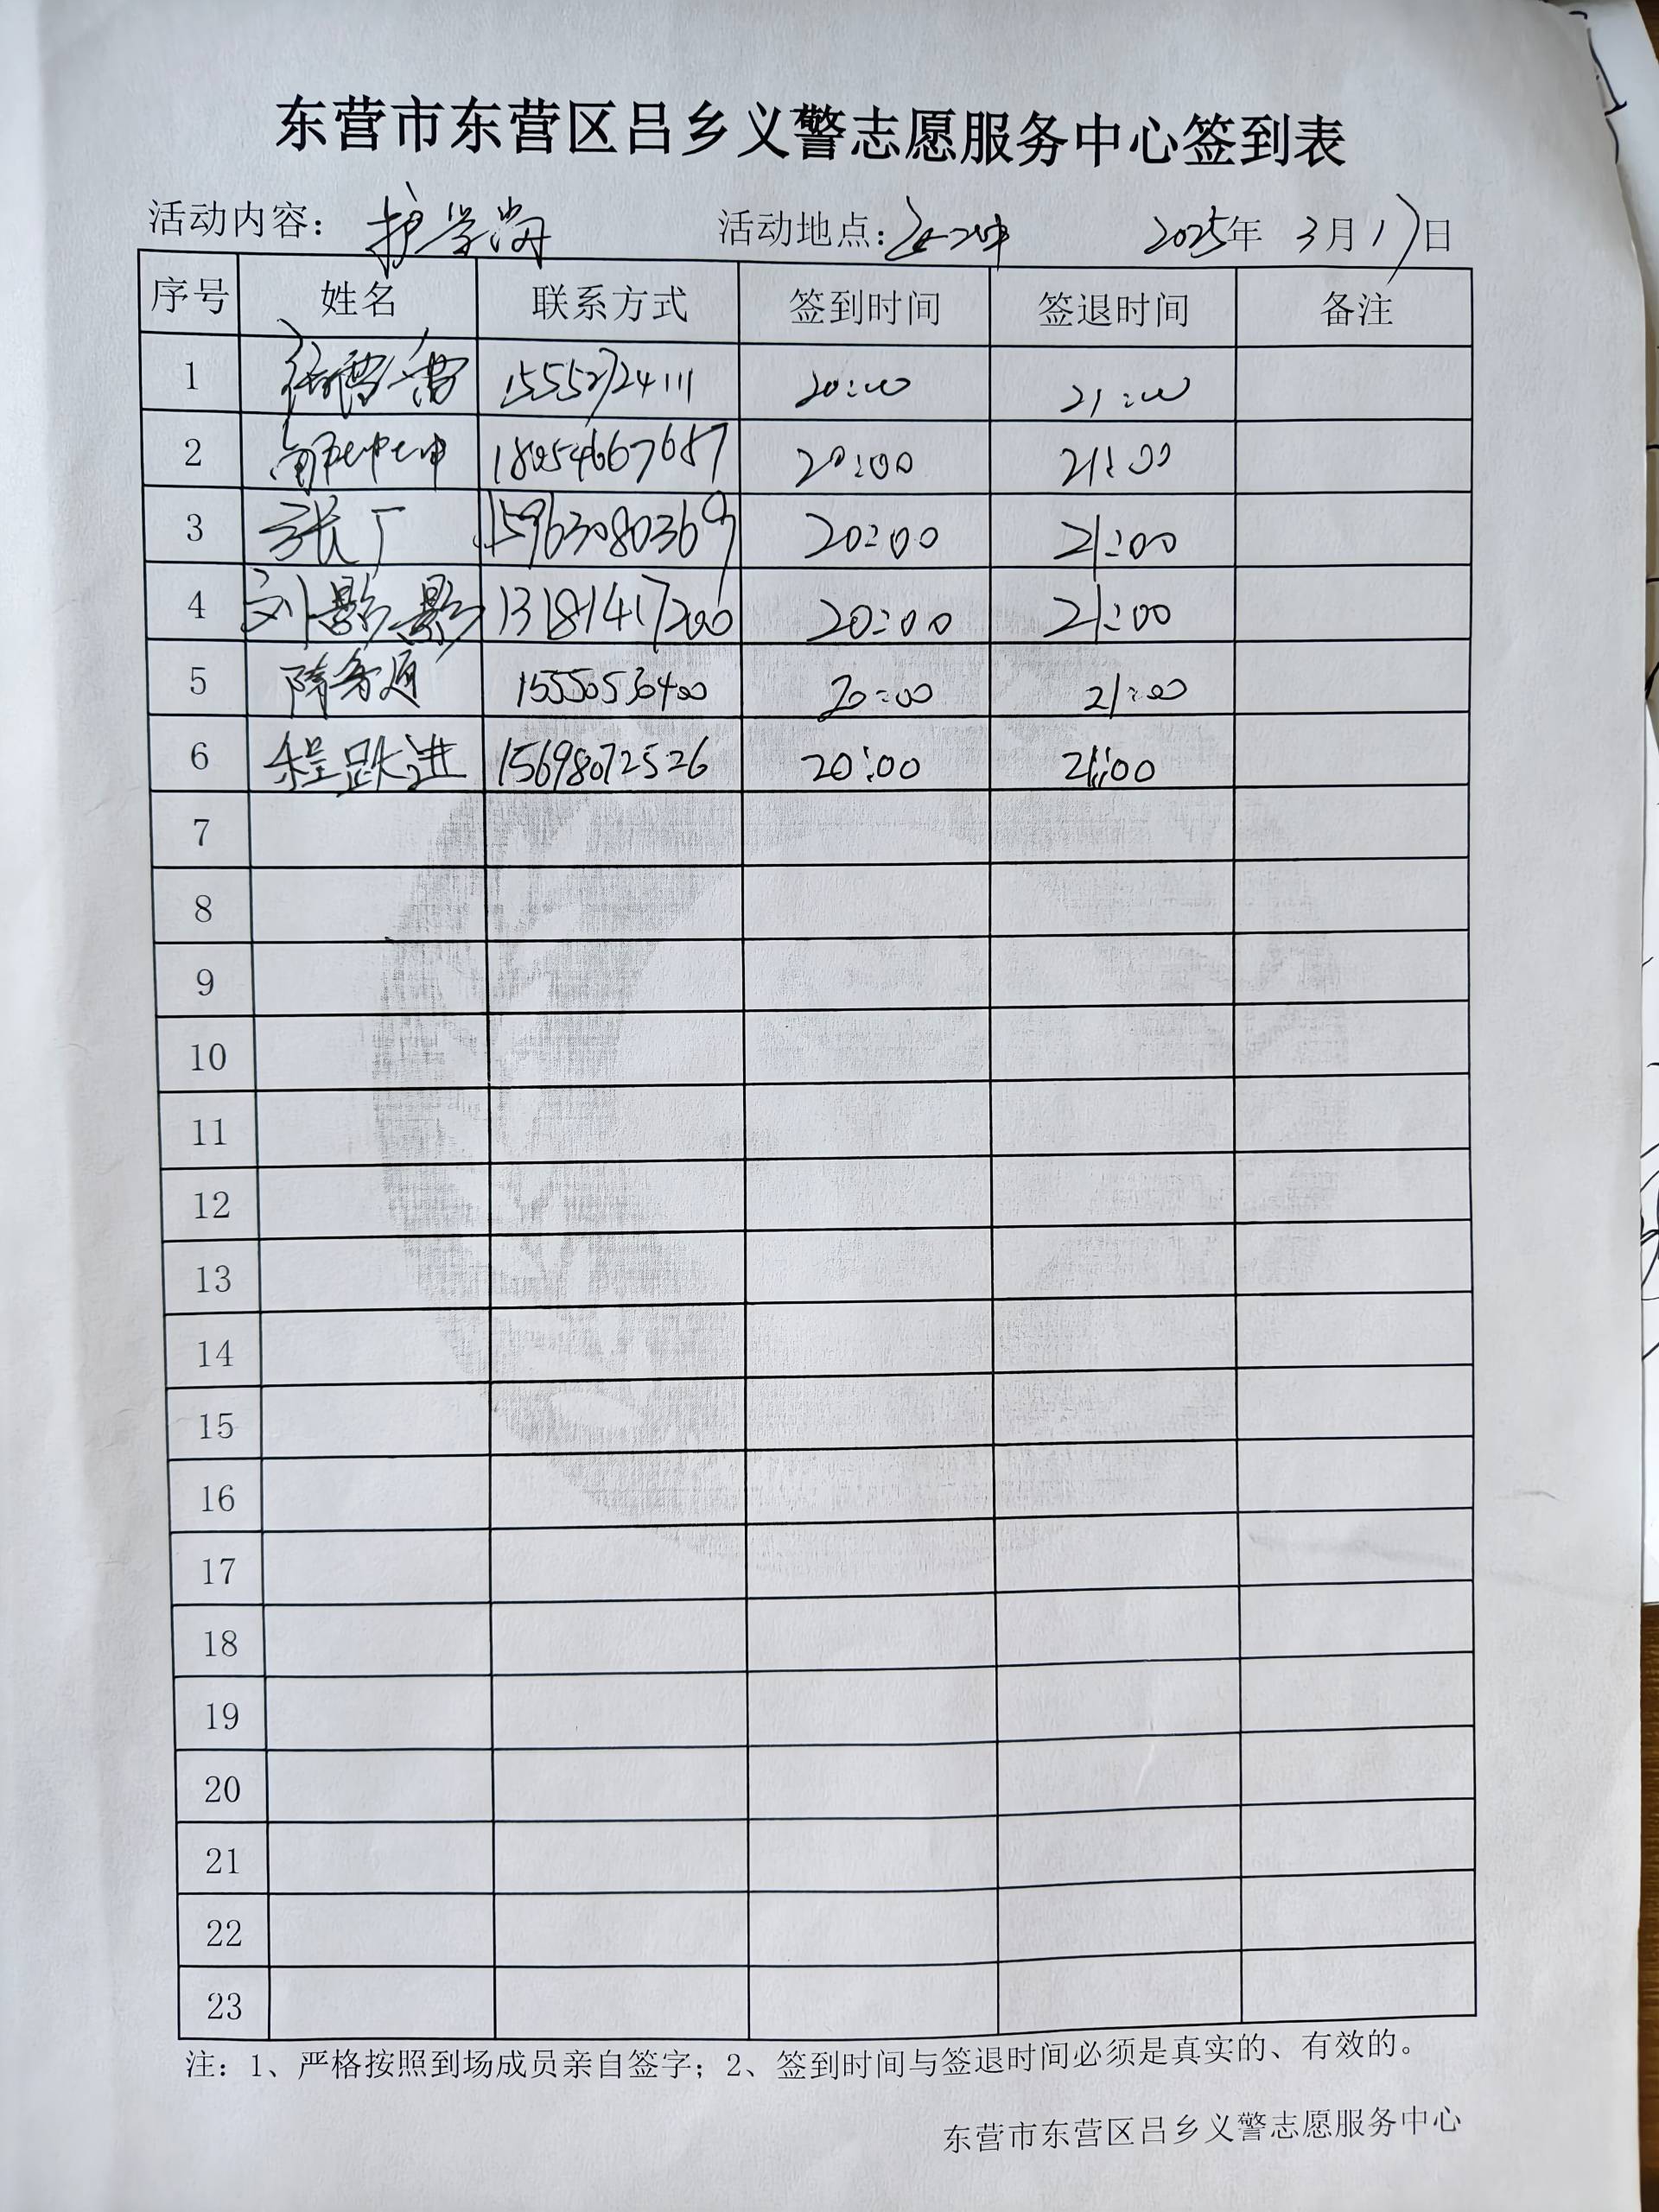 东营市东营区吕乡义警志愿服务中心签到表
活动内容： 护学岗 活动地点： 2025年 3月17日
序号 姓名 联系方式 签到时间 签退时间 备注
1 15552724111 20:00 21:00
2 18054667687 20:00 21:00
3 张广 15963080369 20:00 21:00
4 刘影影 13181417200 20:00 21:00
5 隋 通 15550536400 20:00 21:00
6 程跃进 15698072526 20:00 21:00
7
8
9
10
11
12
13
14
15
16
17
18
19
20
21
22
23
注：1、严格按照到场成员亲自签字；2、签到时间与签退时间必须是真实的、有效的。
东营市东营区吕乡义警志愿服务中心